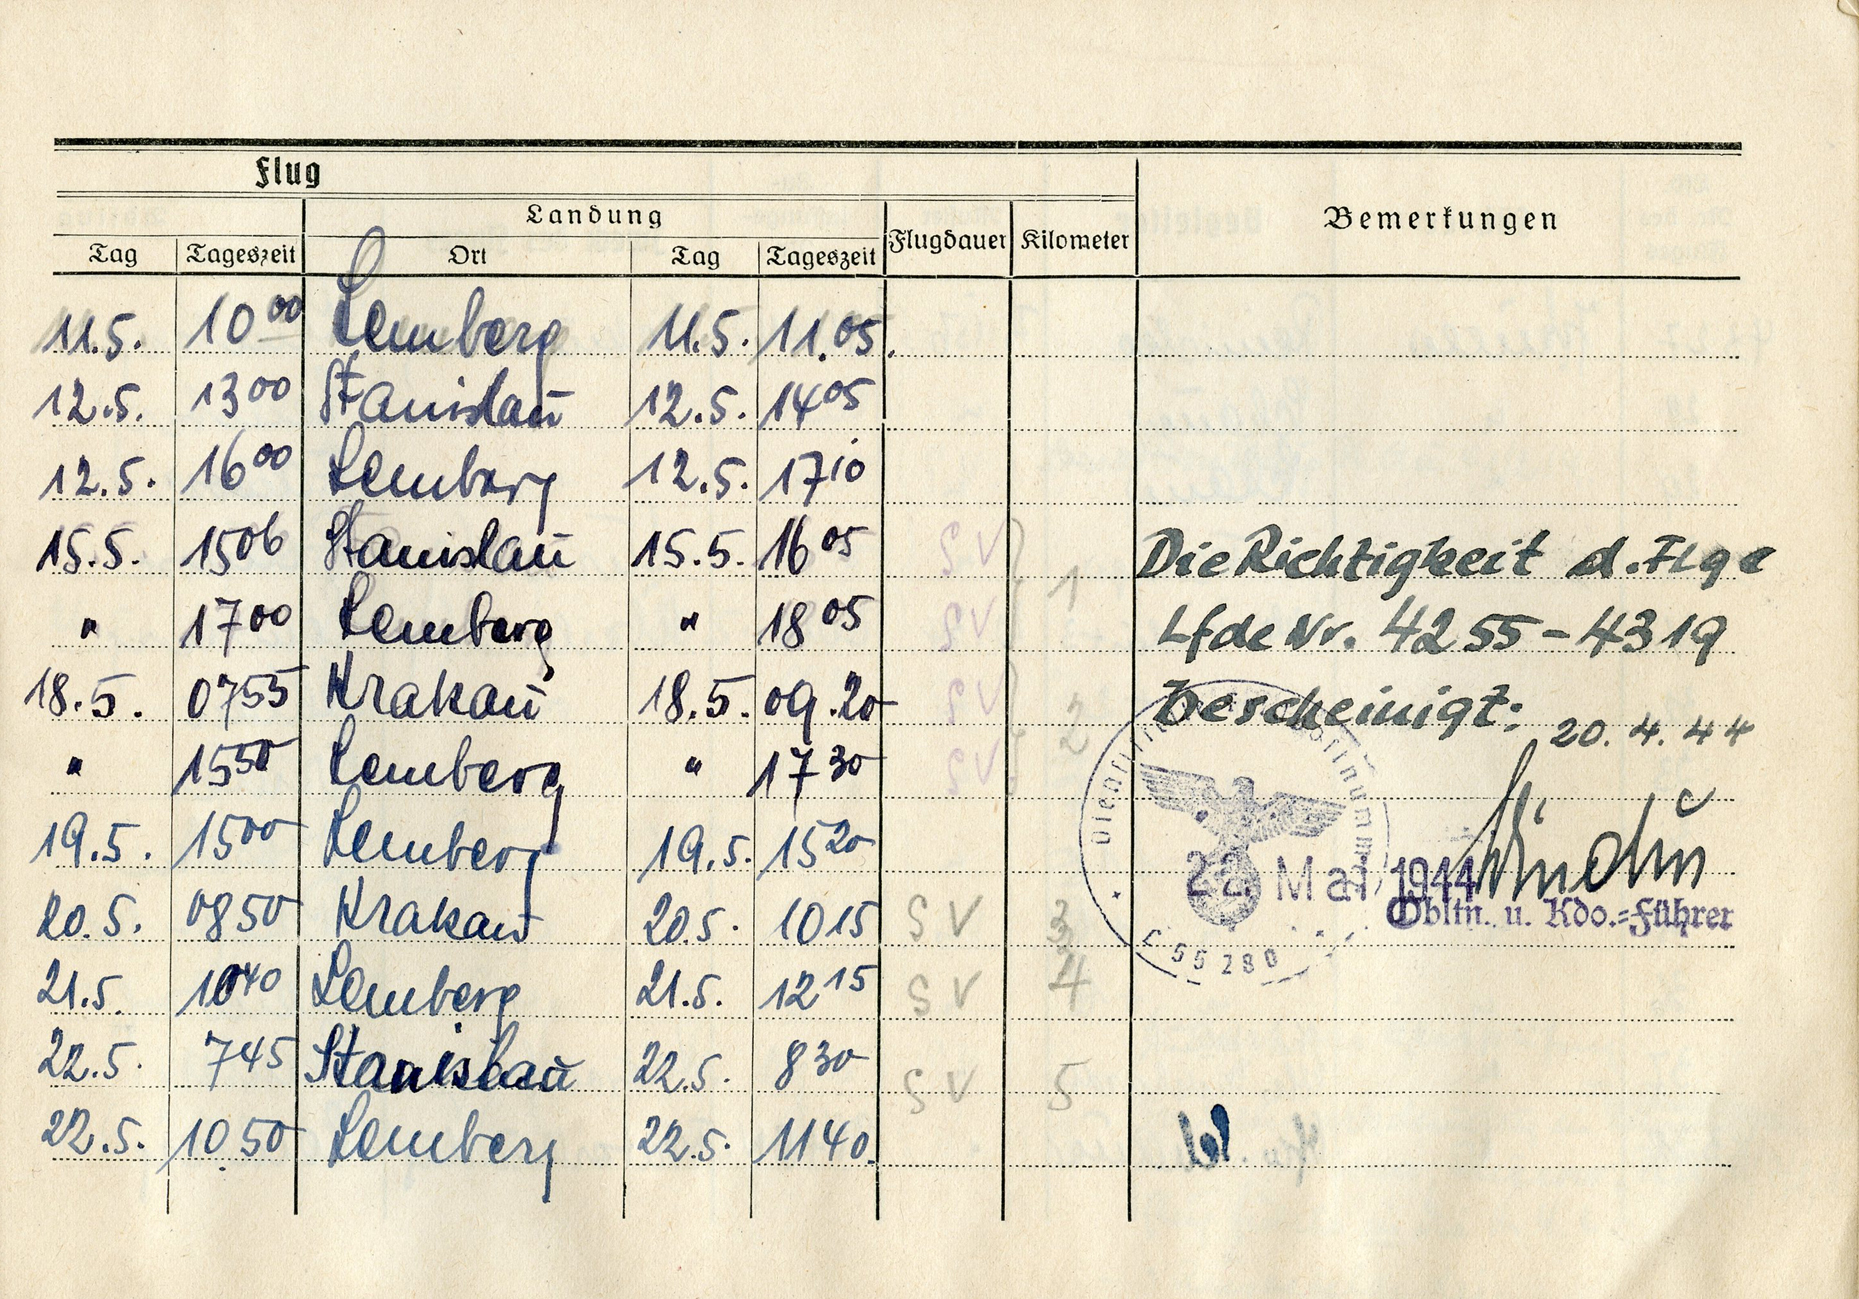 Flug
Landung
Bemerkungen
Tag Tageszeit Ort Tag Tageszeit Flugdauer Kilometer
11.5. 10 00 Lemberg 11.5. 11.05.
12.5. 13 00 Stanislau 12.5. 14 05
12.5. 16 00 Lemberg 12.5. 17 10
15.5. 15 06 Stanislau 15.5. 16 05 SV Die Richtigkeit d. Flge
1
" 17 00 Lemberg " 18 05 SV Lfde Nr. 4255-4319
18.5. 07 55 Krakau 18.5. 09.20 SV Bescheinigt:
2 20.4.44
" 15 50 Lemberg " 17 30 SV
19.5. 15 00 Lemberg 19.5. 15 20
22. Mai 1944
Obltn. u. Kdo.-Führer
20.5. 08 50 Krakau 20.5. 10 15 SV 3
L 55280
21.5. 10 40 Lemberg 21.5. 12 15 SV 4
22.5. 7 45 Stanislau 22.5. 8 30 SV 5
22.5. 10.50 Lemberg 22.5. 11 40.